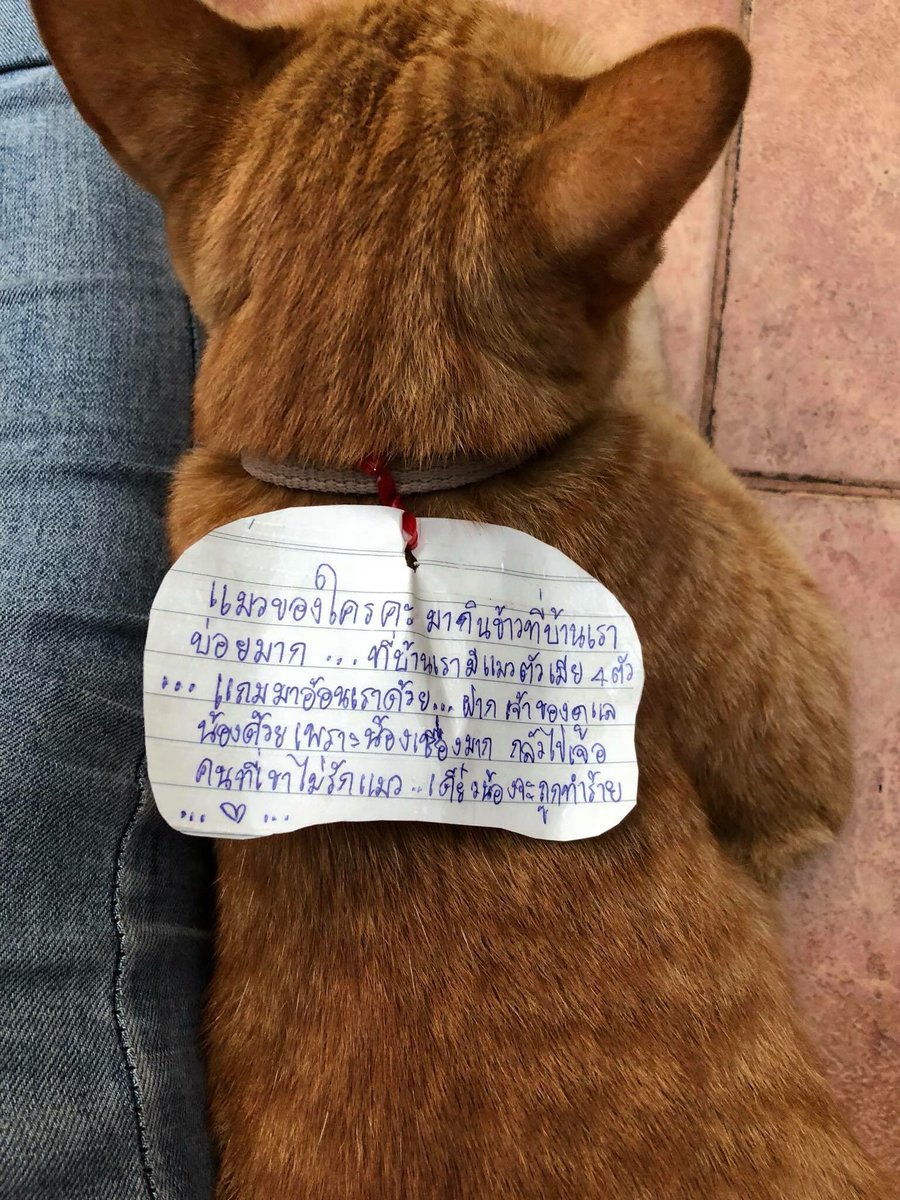 แมวของใครคะ มากินข้าวที่บ้านเรา
บ่อยมาก ... ที่บ้านเรามีแมวตัวเมีย 4 ตัว
... แถมมาอ้อนเราด้วย... ฝาก เจ้าของดูแล
น้องด้วย เพราะน้องเชื่องมาก กลัวไปเจอ
คนที่เขาไม่รักแมว .. เดี๋ยวน้องจะถูกทำร้าย
... ♡ ...